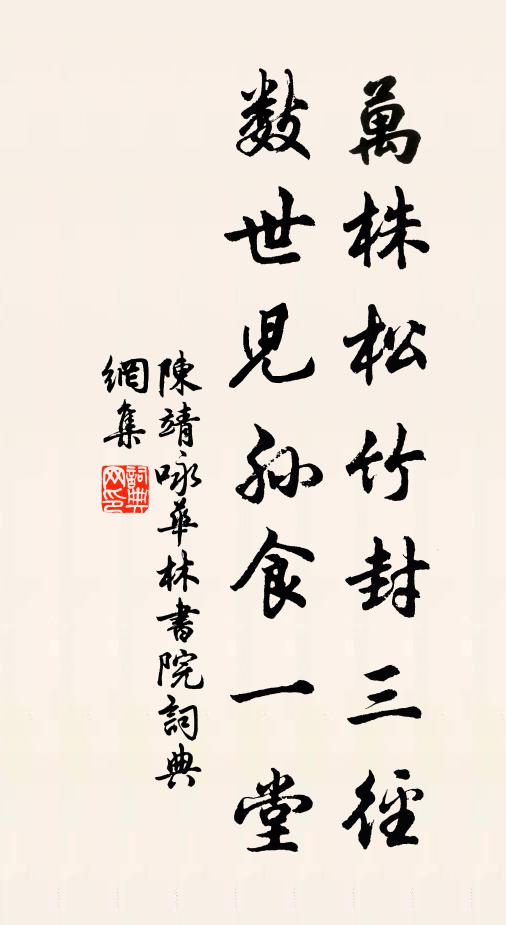 萬株松竹封三徑
数世児孫食一堂
陳靖咏華林書院詞典
網集
詞典
网印